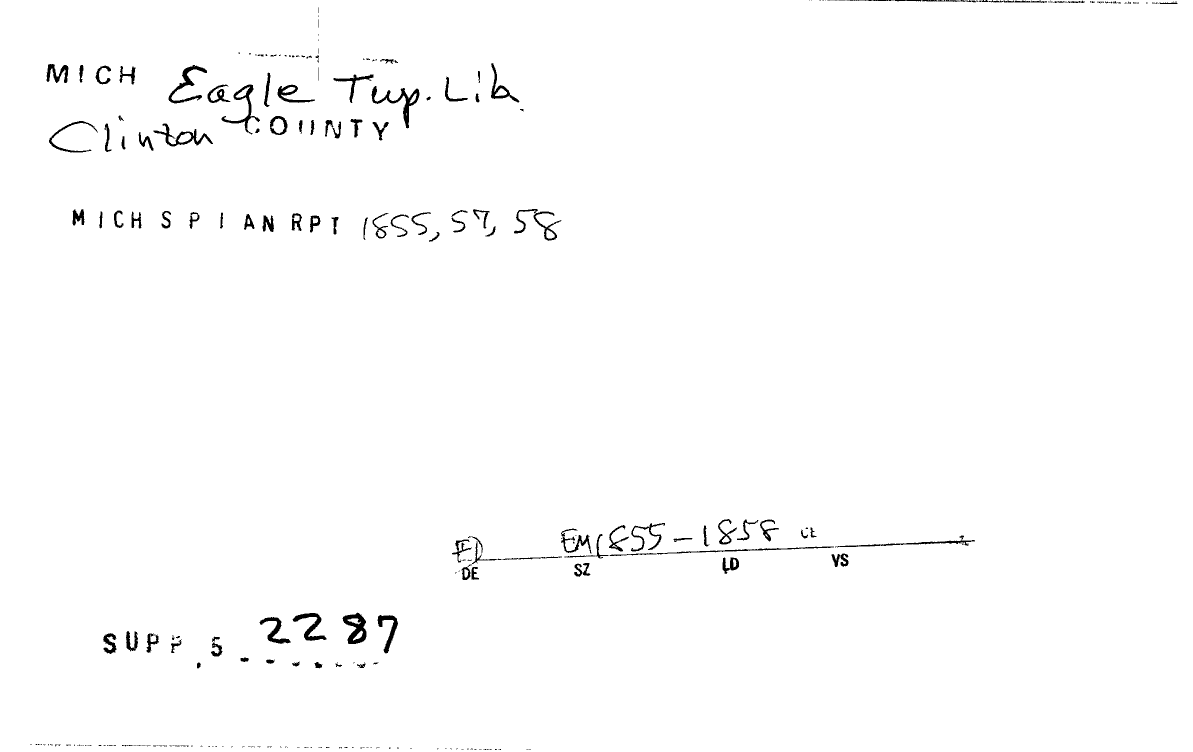 MICH Eagle Twp. Lib.
Clinton COUNTY
MICH S P I AN RPT 1855, 57, 58
EM1855-1858
DE SZ LD VS
SUPP. 5 2287